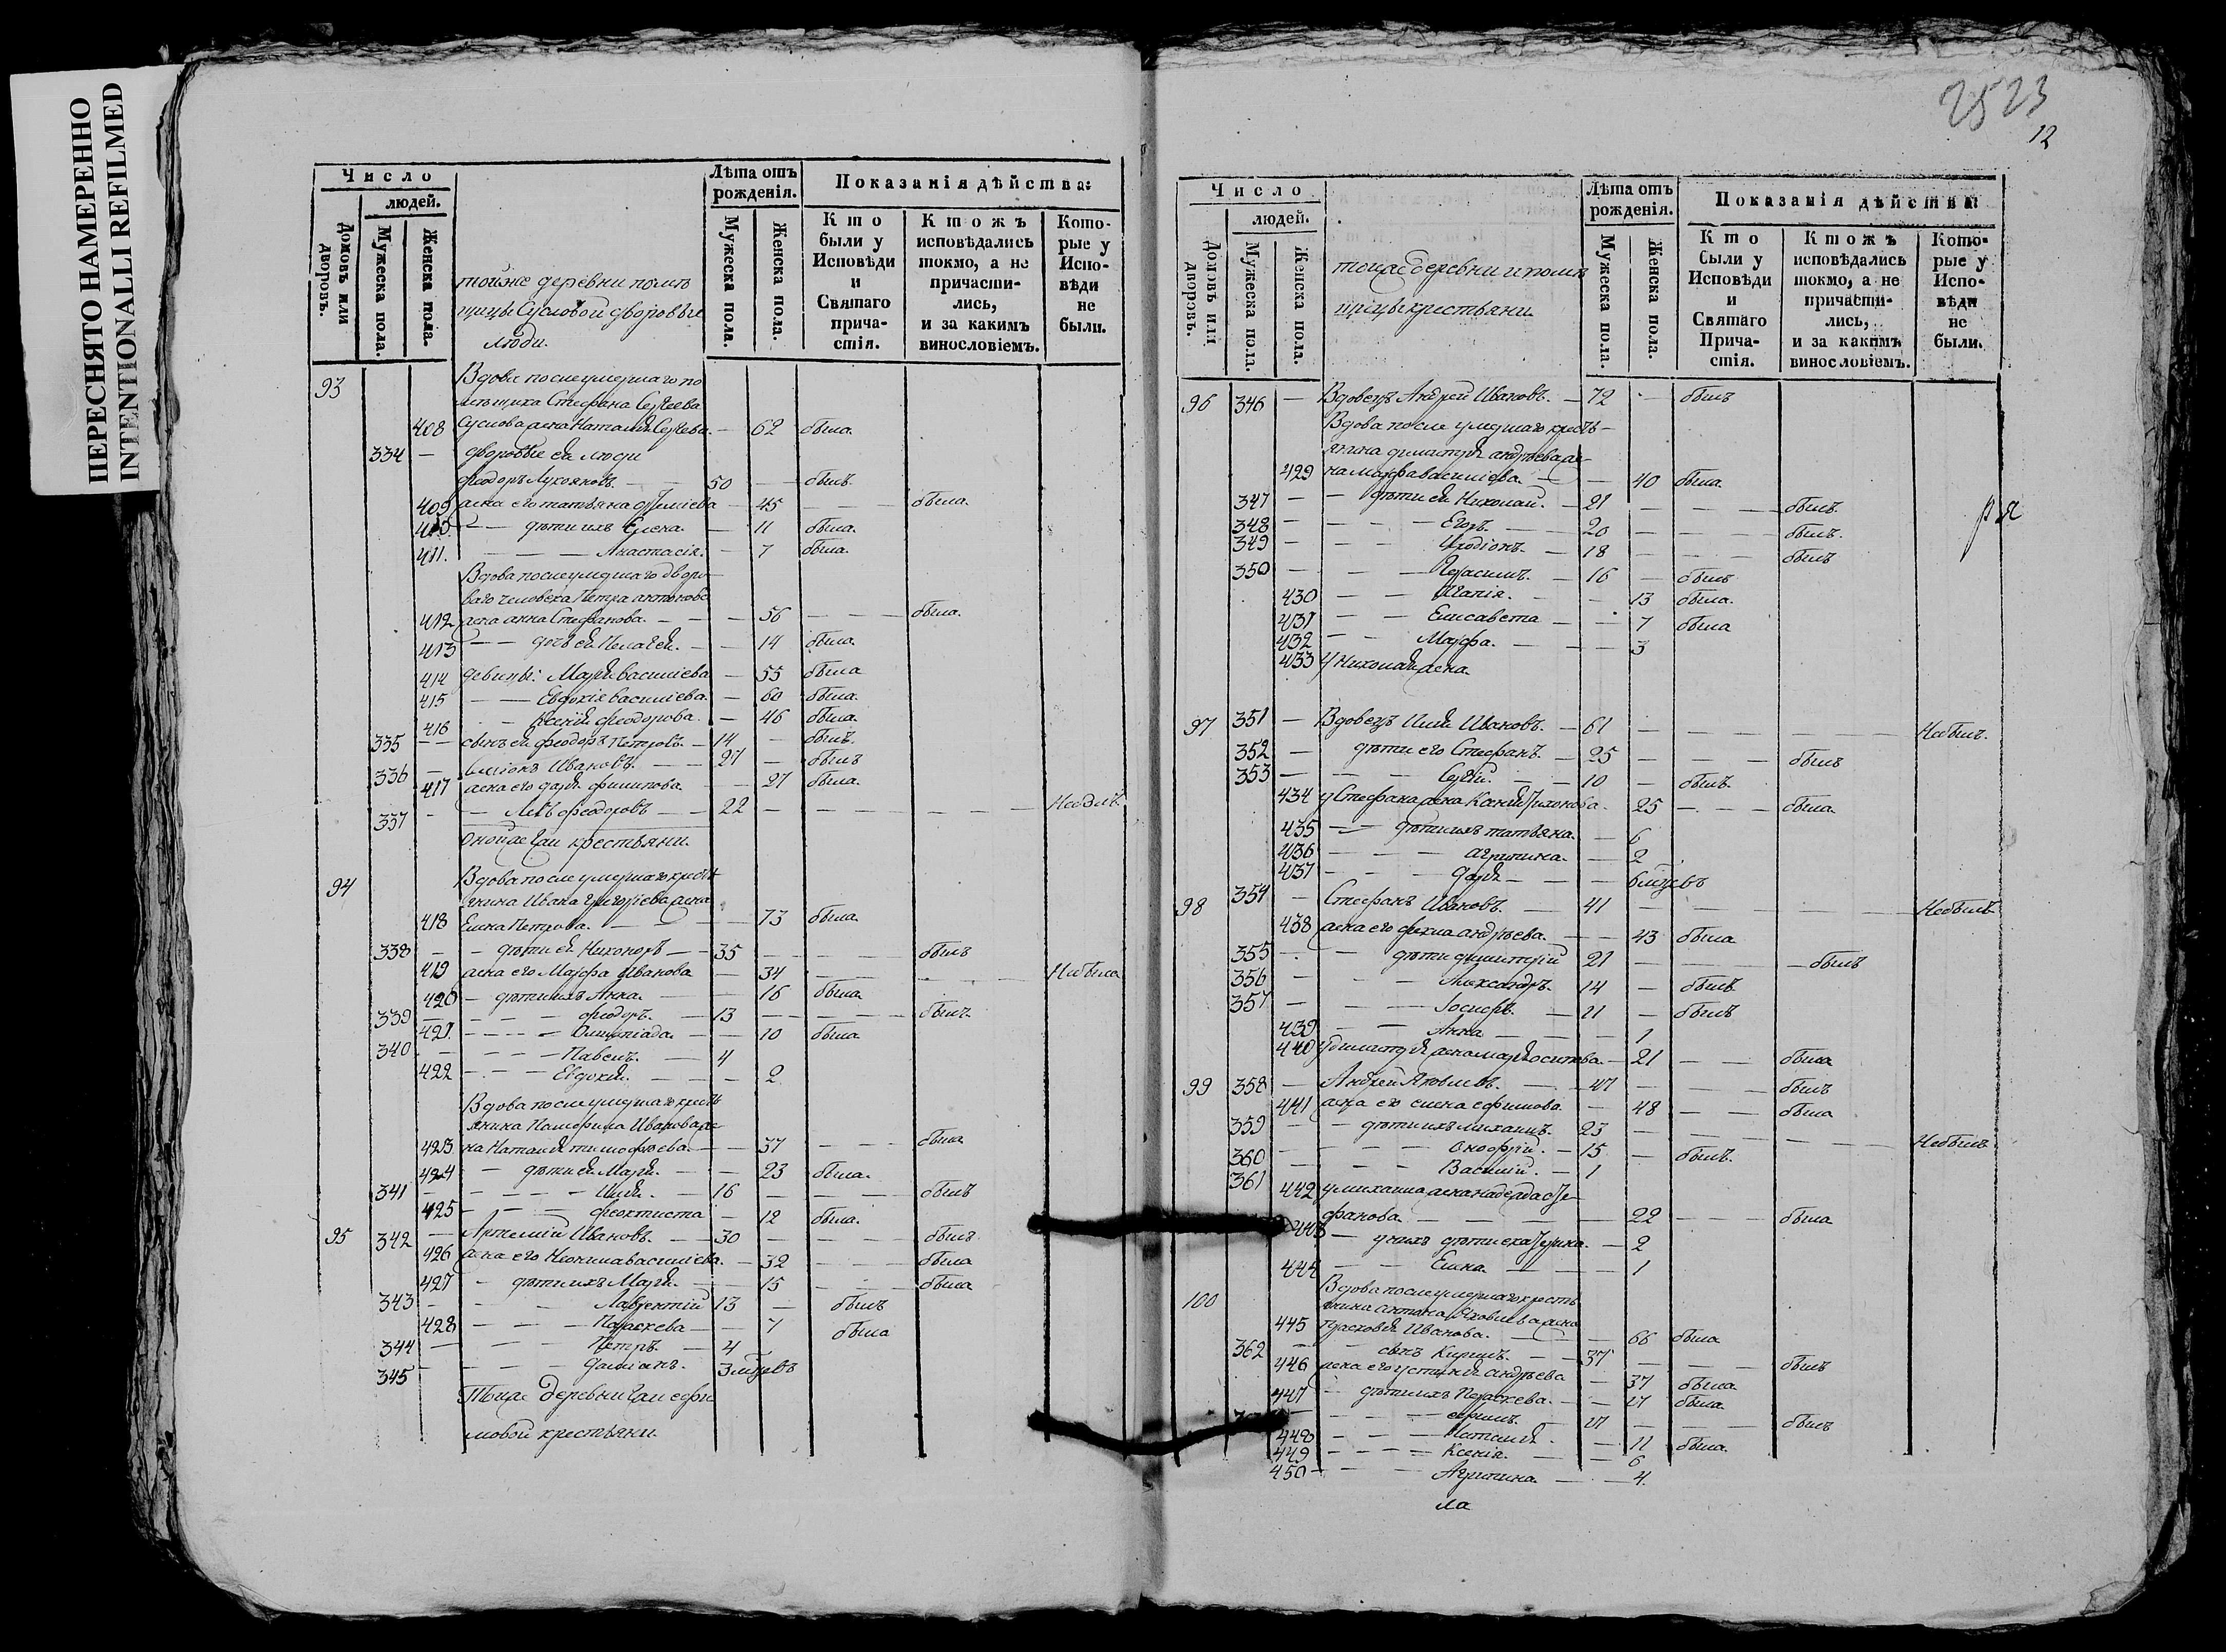 ПЕРЕСНЯТО НАМЕРЕННО
INTENTIONALLI REFILMED
Число
людей.
Домовъ или дворовъ.
Мужеска пола.
Женска пола.
тойже деревни помѣ
щицы Сусловой дворовые
люди.
Лѣта отъ рожденія.
Мужеска пола.
Женска пола.
Показанія дѣйства:
Кто были у Исповѣди и Святаго причастія.
Ктожъ исповѣдались токмо, а не причастились, и за какимъ винословіемъ.
Которые у Исповѣди не были.
93 Вдова после умершаго по
мѣщика Стефана Сергеева
408 Суслова жена Наталія Сергеева — 62 была
334 — дворовые ея люди
Феодоръ Лукояновъ — 50 — былъ
409 жена его татьяна — 45 — — была
410 — — дѣти ихъ Елена — 11 была
411 — — — Анастасія — 7 была
Вдова после умершаго дворо
ваго человека Петра антонова
412 жена анна Стефанова — — 56 — — была
413 — — дочь ея Пелагея — 14 была
414 девицы: Марія василіева — 55 была
415 — — Евдокія василіева — 60 была
416 — Ксенія феодорова — 46 была
335 — — сынъ ея феодоръ Петровъ — 14 — былъ
336 — Ивановъ — — 27 — былъ
417 жена его дарія филипова — 27 была
337 — — Левъ феодоровъ — — 22 — — — — — Небылъ
Оной же крестьяни
94 Вдова после умершаго крестя
янина Ивана григорьева жена
418 Елена Петрова — — 73 была
338 — — дѣти ея Никоноръ — — 35 — — былъ
419 жена его Марфа Иванова — 34 — — — Небыла
420 — дѣти ихъ Анна — 16 была
339 — — — феодоръ — 13 — — — былъ
421 — — — Олимпіада — — 10 была
340 — — — Павелъ — 4
422 — — — Евдокія — — 2
Вдова после умершаго кресть
янина Памфила Иванова же
423 на Наталія тимофеева — — 37 — — была
424 — дѣти ея Марія — — 23 была
341 — — — Илія — 16 — — — былъ
425 — — — феоктиста — 12 была
95 342 — Артемій Ивановъ — 30 — — — былъ
426 жена его Неонила василіева — 32 — — была
427 — дѣти ихъ Марія — — 15 — — была
343 — — — Лаврентій 13 — былъ
428 — — — Параскева — — 7 была
344 — — — Петръ — 4
345 — — — Даміанъ 3 мѣсцовъ
Тоюже деревни ефи
мовой крестьяни
2523
12
Число
людей.
Домовъ или дворовъ.
Мужеска пола.
Женска пола.
тоюже деревни и помѣ
щицы крестьяни
Лѣта отъ рожденія.
Мужеска пола.
Женска пола.
Показанія дѣйства:
Кто были у Исповѣди и Святаго Причастія.
Ктожъ исповѣдались токмо, а не причастились, и за какимъ винословіемъ.
Которые у Исповѣди не были.
96 346 — Вдовецъ Андрей Ивановъ — 72 — былъ
Вдова после умершаго кресть—
янина димитрія андреева же—
429 на марфа василіева — — 40 была
347 — — дѣти ея Николай — 21 — — — былъ
348 — — — Егоръ — 20 — — — былъ
349 — — — Иродіонъ — 18 — — — былъ
350 — — — Герасимъ — 16 — былъ
430 — — Агапія — — 13 была
431 — — Елисавета — — 7 была
432 — — Марфа — — — 3
433 У Николая жена
97 351 — Вдовецъ Илія Ивановъ — 61 — — — — Небылъ
352 — дѣти его Стефанъ — 25 — — — былъ
353 — — — Сергій — — 10 — былъ
434 у Стефана жена Ксенія Тихонова 25 — — была
435 — — дѣти ихъ татьяна — 6
436 — — — агрипина — 2
437 — — — дарія — — 6 мѣсцовъ
98 354 — Стефанъ Ивановъ — 41 — — — — Небылъ
438 жена его фекла андреева — — 43 была
355 — — дѣти димитрій 21 — — — былъ
356 — — — Александръ 14 — былъ
357 — — — Іосифъ — 11 — былъ
439 — — Анна — — — 1
440 У димитрія жена марія осипова — 21 — — была
99 358 — Андрей Яковлевъ — 47 — — былъ
441 жена его елена ефимова — 48 — — была
359 — — дѣти ихъ михаилъ 23 — — — — Небылъ
360 — — — Онофрій — 15 — былъ
361 — — — Василій — 1
442 у михаила жена надежда сте—
фанова — — — — 22 — — была
443 — у нихъ дѣти екатерина — 2
444 — — Елена — — — 1
100 Вдова после умершаго кресть
янина антона Яковлева жена
445 прасковія Иванова — — — 66 была
362 — — сынъ Кирилъ — 37 — — — былъ
446 жена его устинія андреева — 37 была
447 — дѣти ихъ Параскева — — 17 была
— — — ефимъ — 17 — — — былъ
448 — — — Наталія — 11 была
449 — — — Ксенія — — 6
450 — — — Агрипина — — 4
ла
ря